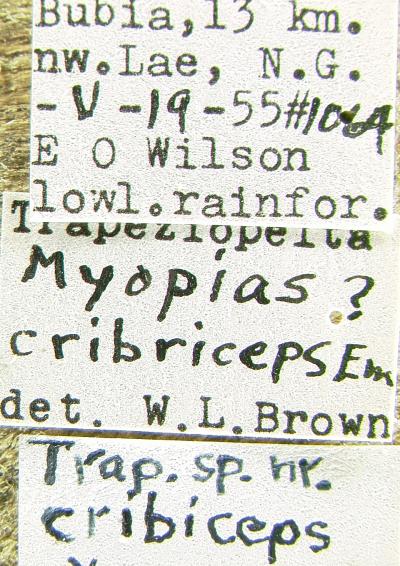 Bubia, 13 km.
nw. Lae, N.G.
-V-19-55 #1064
E O Wilson
lowl. rainfor.
Trapeziopelta
Myopias ?
cribriceps Em
det. W.L. Brown
Trap. sp. nr.
cribiceps